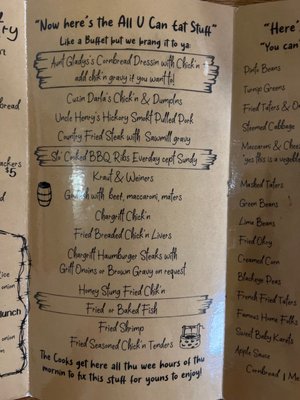 "Now here's the All U Can Eat Stuff"
Like a Buffet but we brang it to ya:
Aunt Gladys's Cornbread Dressin with Chick'n
add chik'n gravy if you want to!
Cuzin Darla's Chick'n & Dumplns
Uncle Henry's Hickory Smokt Pulled Pork
Country Fried Steak with Sawmill gravy
Slo Cooked BBQ Ribs Everday cept Sundy
Kraut & Weiners
Goulash with beef, maccaroni, maters
Chargrill Chick'n
Fried Breaded Chick'n Livers
Chargrill Haumburger Steaks with
Grill Onions or Brown Gravy on request
Honey Stung Fried Chik'n
Fried or Baked Fish
Fried Shrimp
Fried Seasoned Chick'n Tenders
The Cooks get here all thu wee hours of thu
mornin to fix this stuff for youns to enjoy!
"Here'
You can
Pinto Beans
Turnip Greens
Fried Taters & On
Steemed Cabbage
Maccaroni & Chees
"yes this is a veget
Mashed Taters
Green Beans
Lima Beans
Fried Okry
Creamed Corn
Blackeye Peas
French Fried Taters
Famous Home Folks
Sweet Baby Karots
Apple Sauce
Cornbread
read
ackers
$5
ice
onion
lunch
onion